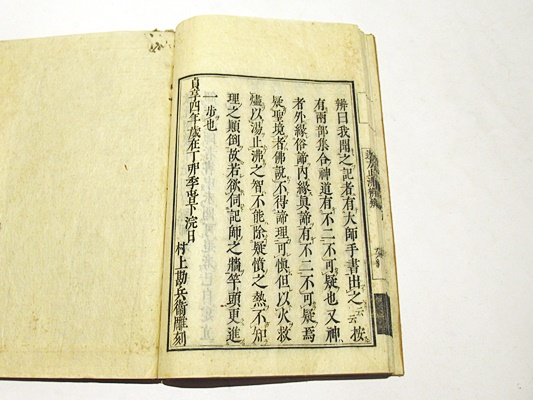 辨曰我聞之記者有大師手書出之云云按
有兩部集合神道有不二不可疑也又神
者外緣俗諦内緣眞諦有不二不可疑焉
疑聖境者佛說不得諦理可愼但以火救
燼以湯止沸之智不能除疑憤之熱不知
理之顛倒故若欲伺記師之牆竿頭更進
一步也
貞享四年歳在丁卯季春下浣日
村上勘兵衛雕刻